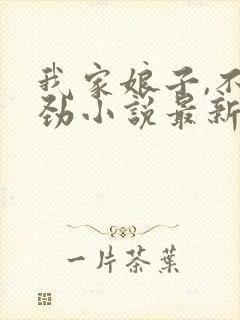 我家娘子,不
劲小说最新
一片茶葉